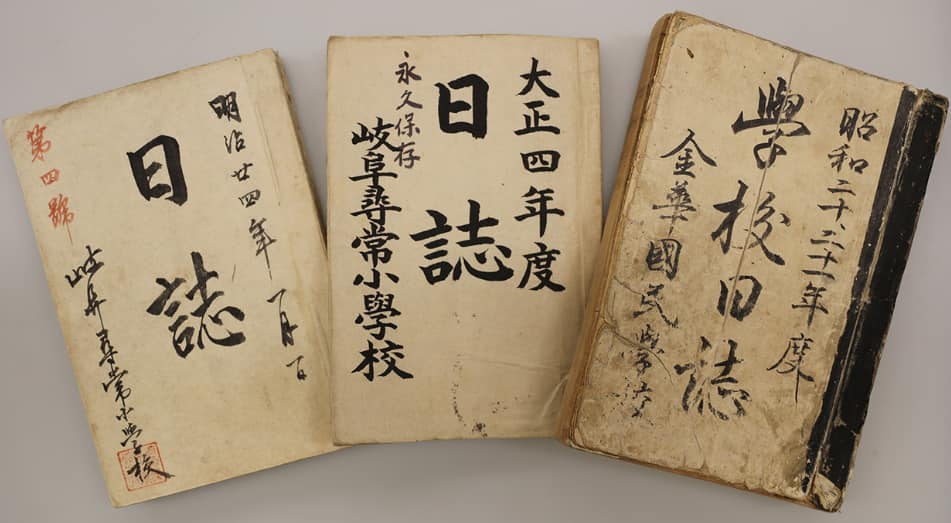 明治廿四年一月一日
日誌
第四號
岐阜尋常小學校
大正四年度
日誌
永久保存
岐阜尋常小學校
昭和二十、二十一年度
學校日誌
金華國民學校